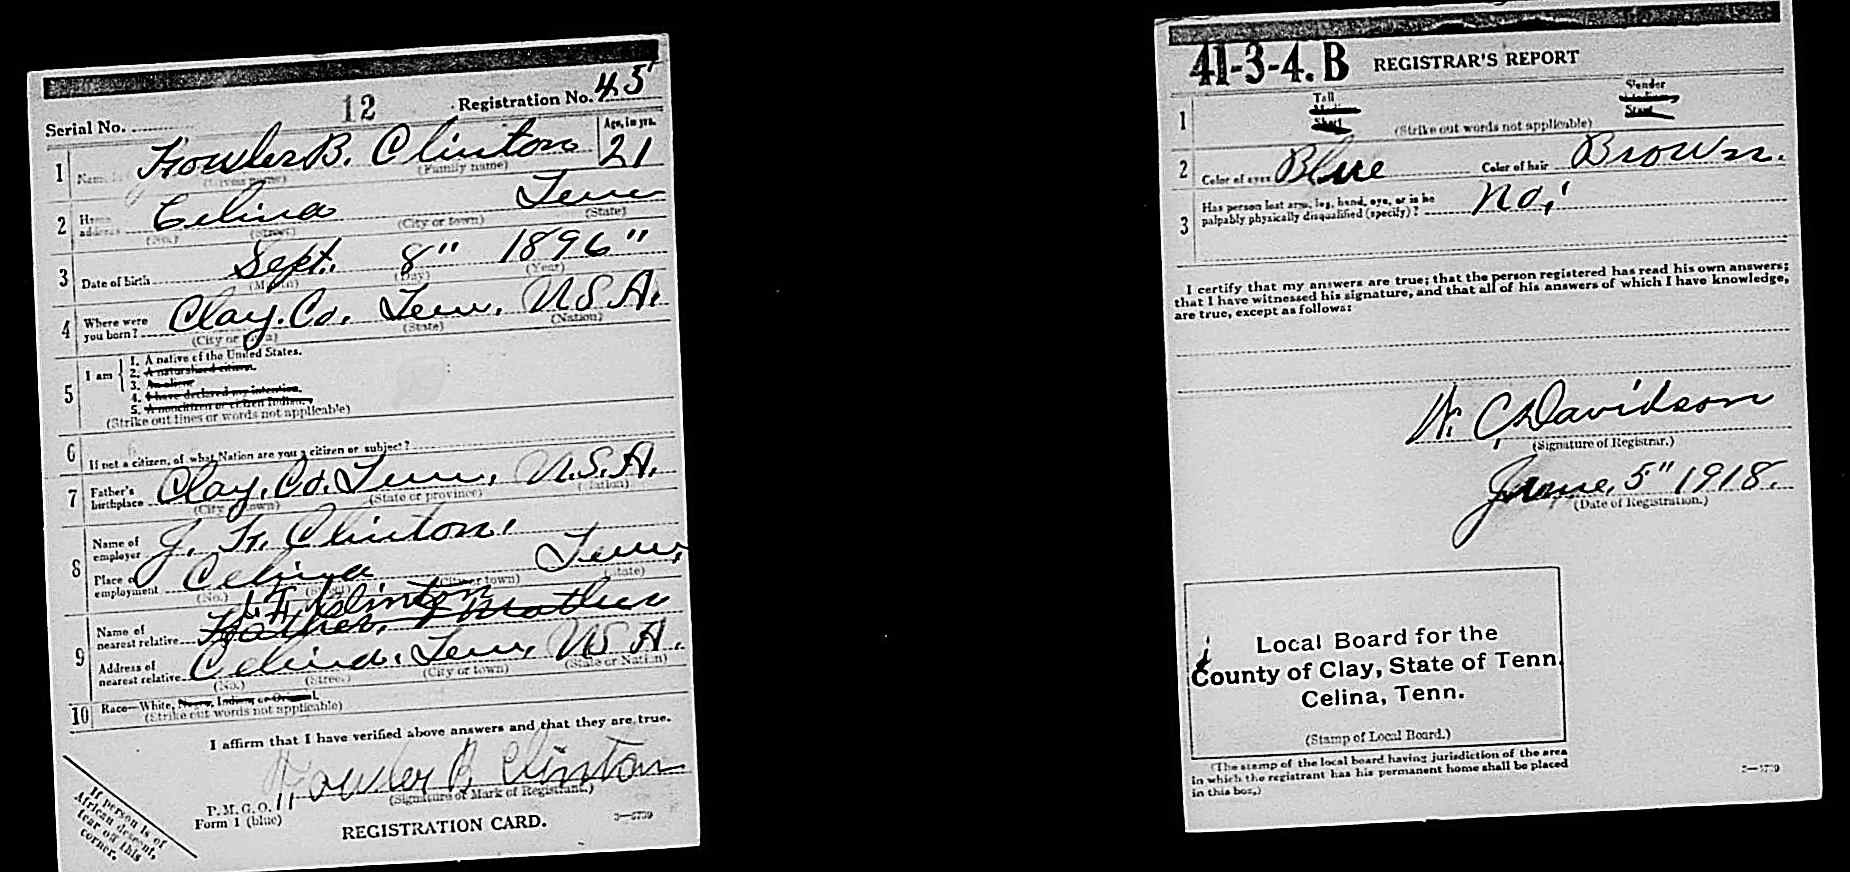 Serial No. 12 Registration No. 45
1 Name Fowler B. Clinton Age, in yrs. 21
(Given name) (Family name)
2 Home address Celina Tenn
(No.) (Street) (City or town) (State)
3 Date of birth Sept. 8" 1896"
(Month) (Day) (Year)
4 Where were you born? Clay. Co. Tenn. U.S.A.
(City or town) (State) (Nation)
5 I am
1. A native of the United States.
2. A naturalized citizen.
3. An alien
4. I have declared my intention.
5. A noncitizen or citizen Indian.
(Strike out lines or words not applicable)
6 If not a citizen, of what Nation are you a citizen or subject?
7 Father's birthplace Clay. Co. Tenn. U.S.A.
(City or town) (State or province) (Nation)
8 Name of employer J. F. Clinton.
Place of employment Celina Tenn.
(No.) (Street) (City or town) (State)
J. F. Clinton
9 Name of nearest relative Father. & Mother
Address of nearest relative Celina. Tenn. U.S.A.
(No.) (Street) (City or town) (State or Nation)
10 Race—White, Negro, Indian, or Oriental.
(Strike out words not applicable)
I affirm that I have verified above answers and that they are true.
Fowler B Clinton
(Signature or Mark of Registrant.)
P. M. G. O.
Form 1 (blue)
REGISTRATION CARD.
3—5739
If person is of
African descent,
tear off this
corner.
41-3-4. B REGISTRAR'S REPORT
1 Tall Slender
Medium Medium
Short Stout
(Strike out words not applicable)
2 Color of eyes Blue Color of hair Brown.
3 Has person lost arm, leg, hand, eye, or is he
palpably physically disqualified (specify)? No.
I certify that my answers are true; that the person registered has read his own answers;
that I have witnessed his signature, and that all of his answers of which I have knowledge,
are true, except as follows:
W. C. Davidson
(Signature of Registrar.)
June. 5" 1918.
(Date of Registration.)
Local Board for the
County of Clay, State of Tenn.
Celina, Tenn.
(Stamp of Local Board.)
(The stamp of the local board having jurisdiction of the area
in which the registrant has his permanent home shall be placed
in this box.)
3—5739